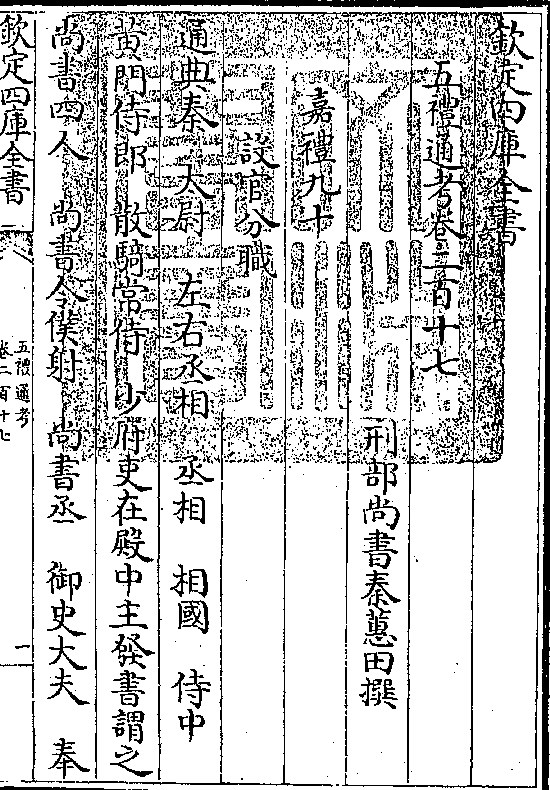 欽定四庫全書
五禮通考卷二百十七
刑部尚書秦蕙田撰
嘉禮九十
設官分職
通典秦 太尉 左右丞相 丞相 相國 侍中
黄門侍郎 散騎常侍 少府吏在殿中主發書謂之
尚書四人 尚書令僕射 尚書丞 御史大夫 奉
欽定四庫全書
五禮通考
卷二百十七
一